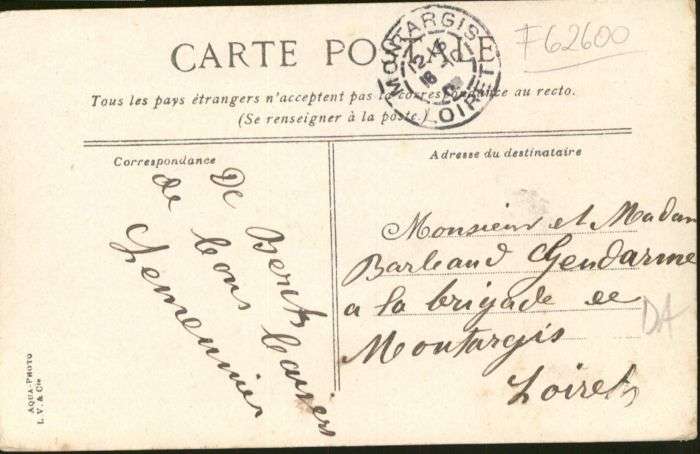 CARTE POSTALE
F62600
MONTARGIS
LOIRET
Tous les pays étrangers n'acceptent pas la correspondance au recto.
(Se renseigner à la poste.)
Correspondance
Adresse du destinataire
De
de bons
Lemeunier
Monsieur et Madam
Barbaud Gendarme
a la brigade de
Montargis
Loiret
DA
AQUA-PHOTO
L. V. & Cie